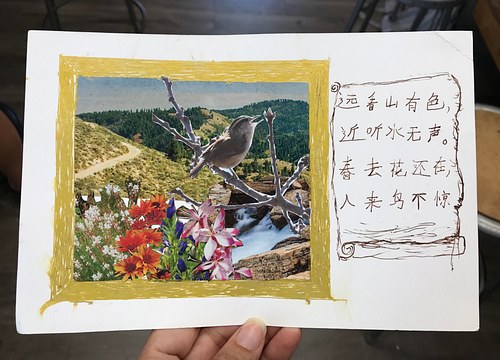 远看山有色,
近听水无声。
春去花还在,
人来鸟不惊